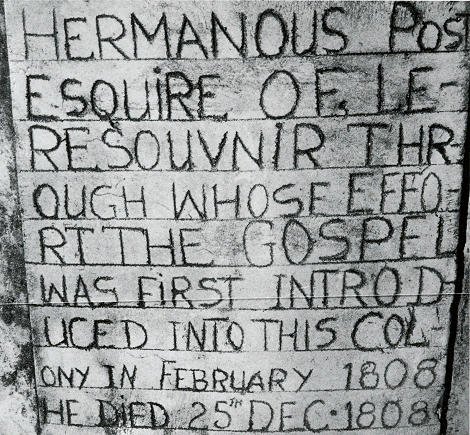 HERMANOUS POS
ESQUIRE OF LE-
RESOUVNIR THR-
OUGH WHOSE EFFO-
RT THE GOSPEL
WAS FIRST INTROD-
UCED INTO THIS COL-
ONY IN FEBRUARY 1808
HE DIED 25TH DEC·1808